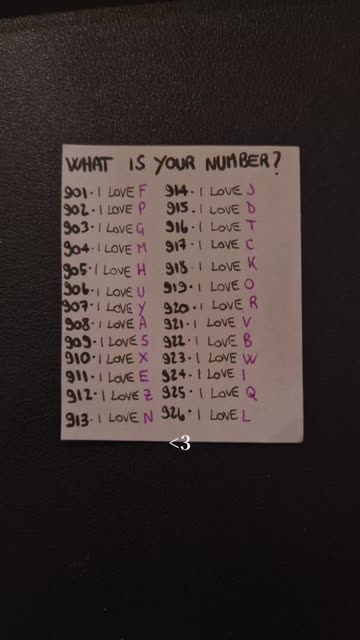 WHAT IS YOUR NUMBER?
901· I LOVE F
902· I LOVE P
903· I LOVE G
904· I LOVE M
905· I LOVE H
906· I LOVE U
907· I LOVE Y
908· I LOVE A
909· I LOVE S
910· I LOVE X
911· I LOVE E
912· I LOVE Z
913· I LOVE N
914· I LOVE J
915· I LOVE D
916· I LOVE T
917· I LOVE C
918· I LOVE K
919· I LOVE O
920· I LOVE R
921· I LOVE V
922· I LOVE B
923· I LOVE W
924· I LOVE I
925· I LOVE Q
926· I LOVE L
<3